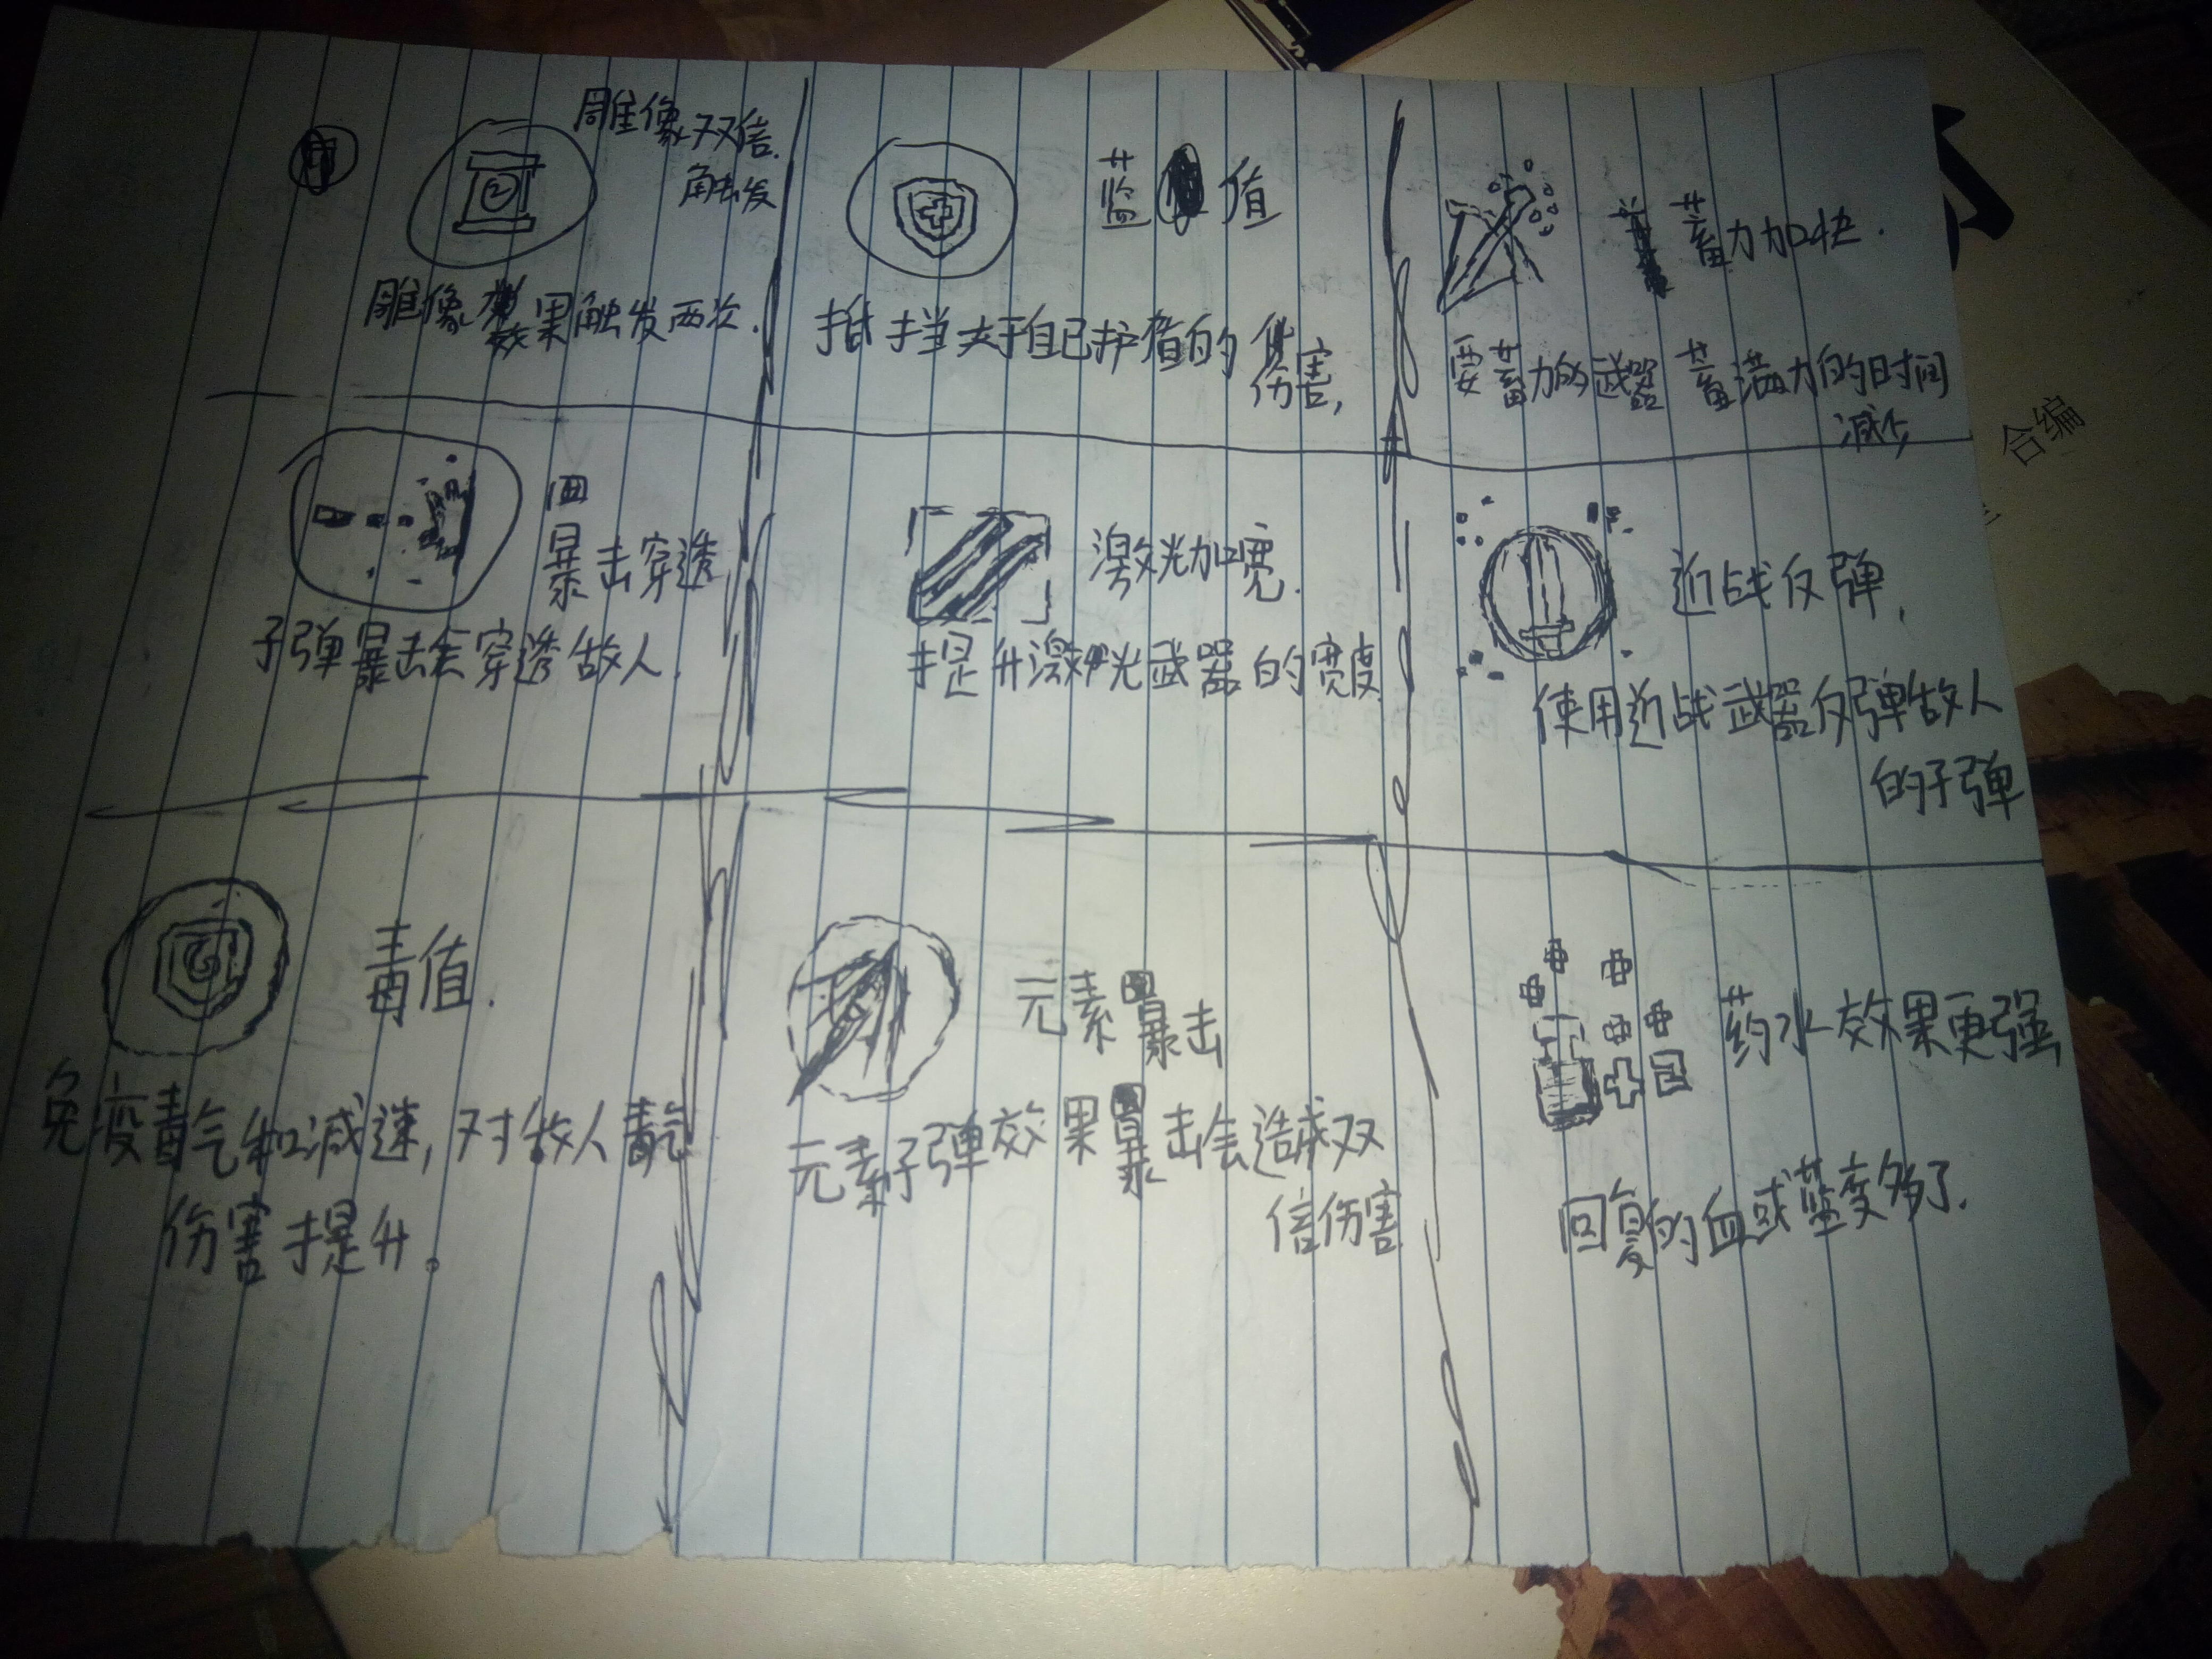 雕像双倍
触发
雕像效果触发两次.
蓝值
抵挡大于自己护盾的伤害,
蓄力加快.
要蓄力的武器蓄满力的时间
减少
暴击穿透
子弹暴击会穿透敌人.
激光加宽.
提升激光武器的宽度
近战反弹.
使用近战武器反弹敌人
的子弹
毒值.
免疫毒气和减速,对敌人毒气
伤害提升。
元素暴击
元素子弹效果暴击会造成双
倍伤害
药水效果更强
回复的血或蓝变多了.
合编